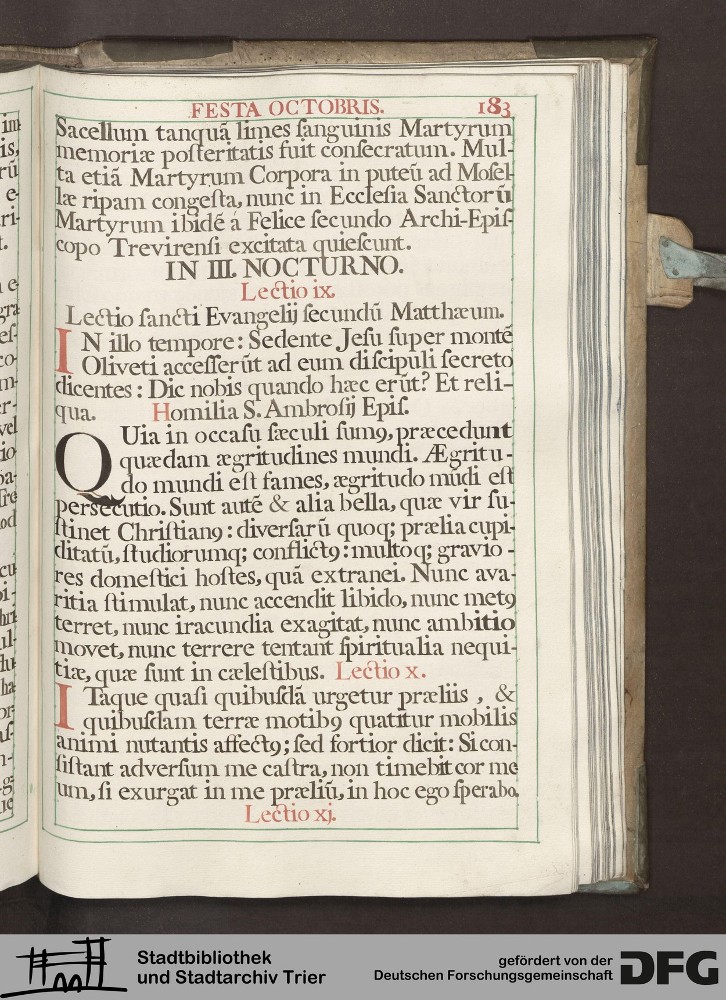 FESTA OCTOBRIS. 183
Sacellum tanquã limes ſanguinis Martyrum
memoriæ poſteritatis fuit conſecratum. Mul-
ta etiã Martyrum Corpora in puteũ ad Moſel-
læ ripam congeſta, nunc in Eccleſia Sanctorũ
Martyrum ibidẽ á Felice ſecundo Archi-Epiſ-
copo Trevirenſi excitata quieſcunt.
IN III. NOCTURNO.
Lectio ix.
Lectio ſancti Evangelij ſecundũ Matthæum.
IN illo tempore: Sedente Jeſu ſuper montẽ
Oliveti acceſſerũt ad eum diſcipuli ſecreto
dicentes: Dic nobis quando hæc erũt? Et reli-
qua. Homilia S. Ambroſij Epiſ.
QUia in occaſu ſæculi ſumꝰ, præcedunt
quædam ægritudines mundi. Ægritu-
do mundi eſt fames, ægritudo mũdi eſt
persecutio. Sunt autẽ & alia bella, quæ vir ſu-
ſtinet Chriſtianꝰ: diverſarũ quoq; prælia cupi-
ditatũ, ſtudiorumq; conflictꝰ: multoq; gravio-
res domeſtici hoſtes, quã extranei. Nunc ava-
ritia ſtimulat, nunc accendit libido, nunc metꝰ
terret, nunc iracundia exagitat, nunc ambitio
movet, nunc terrere tentant ſpiritualia nequi-
tiæ, quæ ſunt in cæleſtibus. Lectio x.
ITaque quaſi quibuſdã urgetur præliis, &
quibuſdam terræ motibꝰ quatitur mobilis
animi nutantis affectꝰ; ſed fortior dicit: Si con-
ſiſtant adverſum me caſtra, non timebit cor me
um, ſi exurgat in me præliũ, in hoc ego ſperabo.
Lectio xj.
Stadtbibliothek
und Stadtarchiv Trier
gefördert von der
Deutschen Forschungsgemeinschaft
DFG